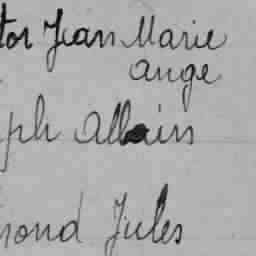 tor Jean Marie
Ange
ph Allain
mond Jules